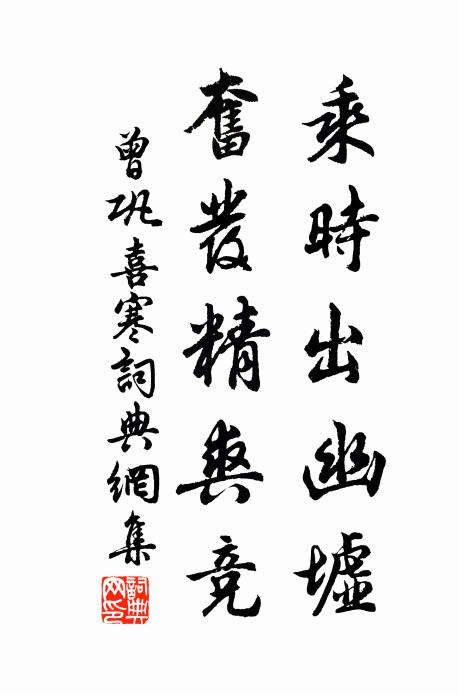 乘時出幽墟
奮發精爽競
曾巩喜寒詞典網集
詞典网印